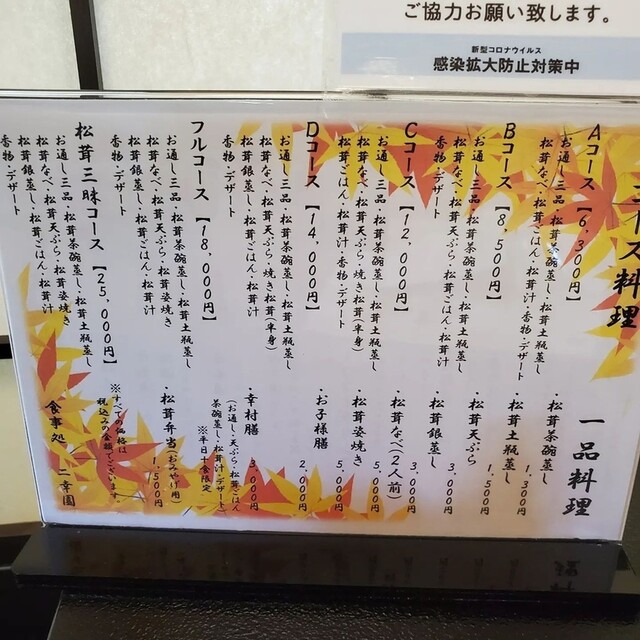 ご協力お願い致します。
新型コロナウイルス
感染拡大防止対策中
コース料理
Aコース 【6,300円】
お通し三品・松茸茶碗蒸し・松茸土瓶蒸し
松茸なべ・松茸ごはん・松茸汁・香物・デザート
Bコース 【8,500円】
お通し三品・松茸茶碗蒸し・松茸土瓶蒸し
松茸なべ・松茸天ぷら・松茸ごはん・松茸汁
香物・デザート
Cコース 【12,000円】
お通し三品・松茸茶碗蒸し・松茸土瓶蒸し
松茸なべ・松茸天ぷら・焼き松茸(半身)
松茸ごはん・松茸汁・香物・デザート
Dコース 【14,000円】
お通し三品・松茸茶碗蒸し・松茸土瓶蒸し
松茸なべ・松茸天ぷら・焼き松茸(半身)
松茸銀蒸し・松茸ごはん・松茸汁
香物・デザート
フルコース 【18,000円】
お通し三品・松茸茶碗蒸し・松茸土瓶蒸し
松茸なべ・松茸天ぷら・松茸姿焼き
松茸銀蒸し・松茸ごはん・松茸汁
香物・デザート
松茸三昧コース 【25,000円】
お通し三品・松茸茶碗蒸し・松茸土瓶蒸し
松茸なべ・松茸天ぷら・松茸姿焼き
松茸銀蒸し・松茸ごはん・松茸汁
香物・デザート
一品料理
・松茸茶碗蒸し 1,300円
・松茸土瓶蒸し 1,500円
・松茸天ぷら 3,000円
・松茸銀蒸し 3,000円
・松茸なべ(2人前) 5,000円
・松茸姿焼き 5,000円
・お子様膳 2,000円
・幸村膳 3,000円
(お通し・天ぷら・松茸ごはん
茶碗蒸し・松茸汁・デザート)
※平日十食限定
・松茸弁当(おみやげ用) 1,500円
※すべての価格は
税込みの金額でございます
食事処 二幸園